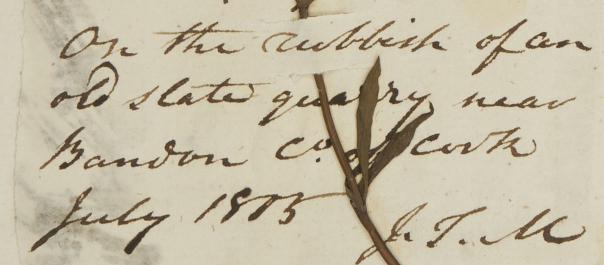 On the rubbish of an
old slate quarry near
Bandon Co. of Cork
July 1805 J. T. M